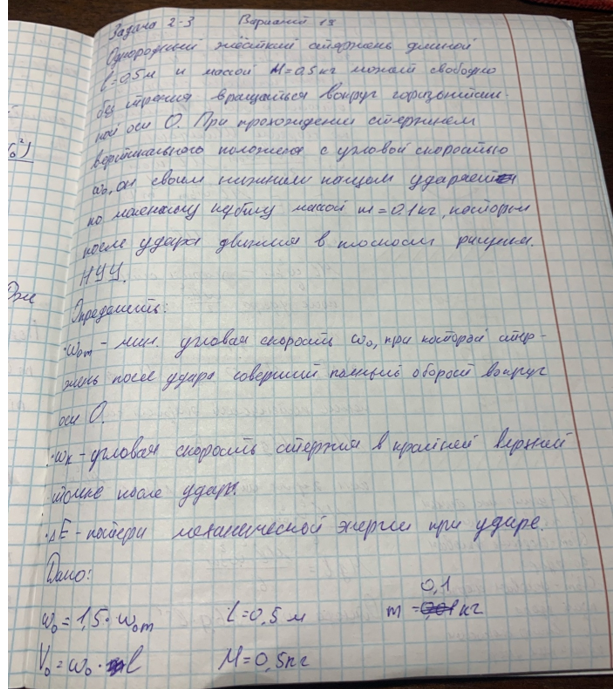 Задача 2-3 Вариант 18
Однородный жёсткий стержень длиной
l=0,5м и массой M=0,5 кг может свободно
без трения вращаться вокруг горизонталь-
ной оси О. При прохождении стержнем
вертикального положения с угловой скоростью
ω₀, он своим нижним концом ударяется
по маленькому кубику массой m=0,1 кг, который
после удара движется в плоскости рисунка.
НУУ.
Определить:
·ω₀m - мин. угловая скорость ω₀, при которой стер-
жень после удара совершит полный оборот вокруг
оси О.
·ωк - угловая скорость стержня в крайней верхней
точке после удара.
·ΔE - потери механической энергии при ударе.
Дано:
ω₀=1,5·ω₀m L=0,5 м m = 0,1 кг
V₀=ω₀·l M=0,5кг